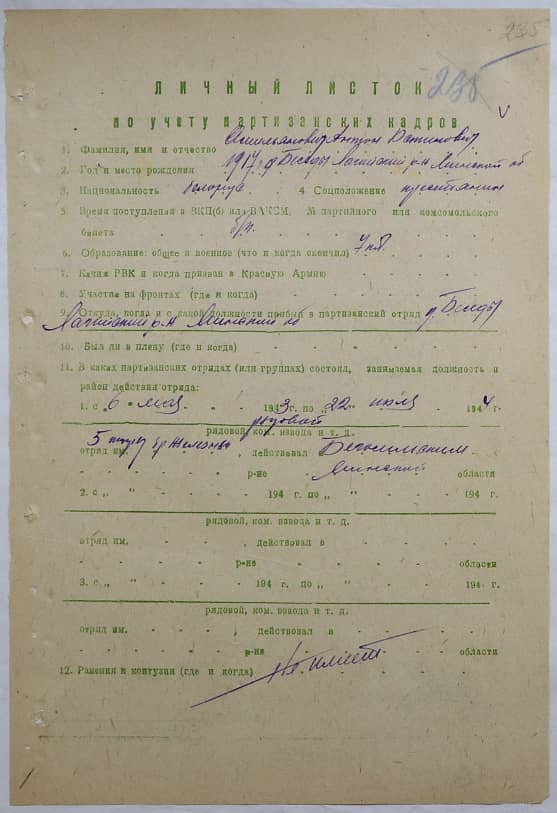 235
235
ЛИЧНЫЙ ЛИСТОК
по учету партизанских кадров
1. Фамилия, имя и отчество Антон
2. Год и место рождения 1917 г. д Беседы Логойский р-н Минской об
3. Национальность белорус 4 Соцположение крестьянин
5 Время поступления в ВКП(б) или ВЛКСМ, № партийного или комсомольского
билета б/п.
6. Образование: общее и военное (что и когда окончил) 7 кл.
7. Каким РВК и когда призван в Красную Армию
8. Участие на фронтах (где и когда)
9. Откуда, когда и с какой должности прибыл в партизанский отряд д. Беседы
Логойский р-н Минский об
10. Был ли в плену (где и когда)
11. В каких партизанских отрядах (или группах) состоял, занимаемая должность и
район действия отряда:
1. с „ 6 " мая 1943 г. по „ 22 " июля 1944 г.
рядовой
рядовой, ком. взвода и т. д.
5 отряд бр Железняк
отряд им. , действовал Бегомльским
р-не Минской области
2. с „ " 194 г. по „ " 194 г.
рядовой, ком. взвода и т. д.
отряд им. , действовал в
р-не области
3. с „ " 194 г. по „ " 194 г.
рядовой, ком. взвода и т. д.
отряд им. , действовал в
р-не области
12. Ранения и контузии (где и когда) Не имеет.